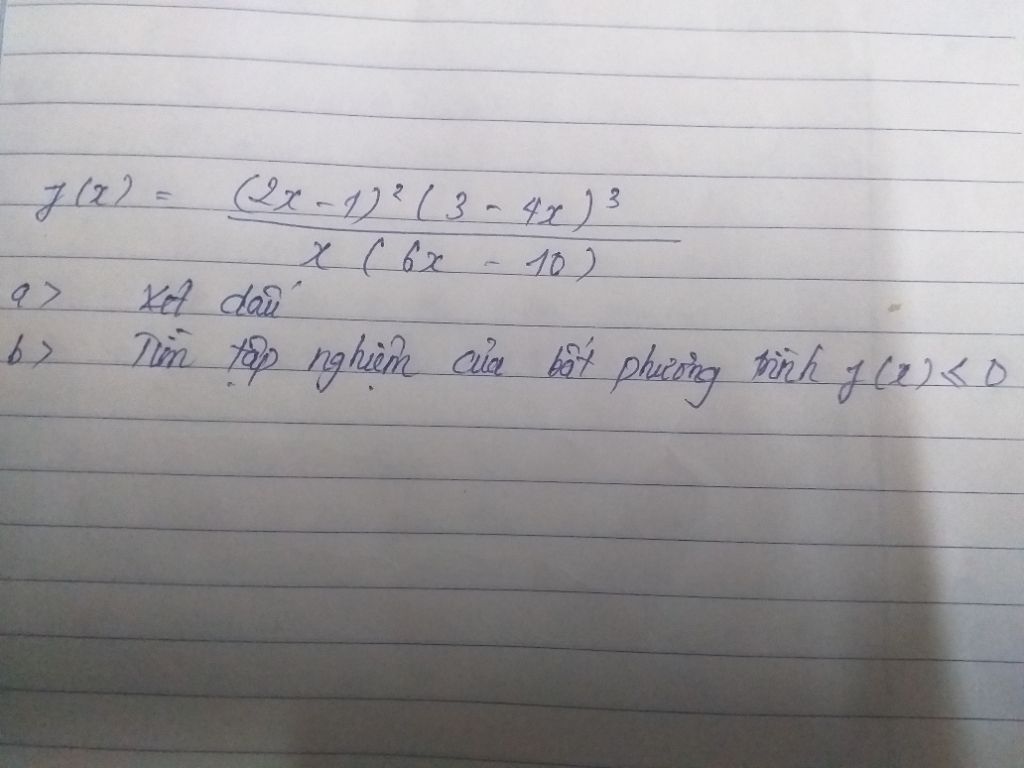 y(x) = (2x - 1)² (3 - 4x)³
x (6x - 10)
a> Xét dấu
b> Tìm tập nghiệm của bất phương trình y(x) < 0